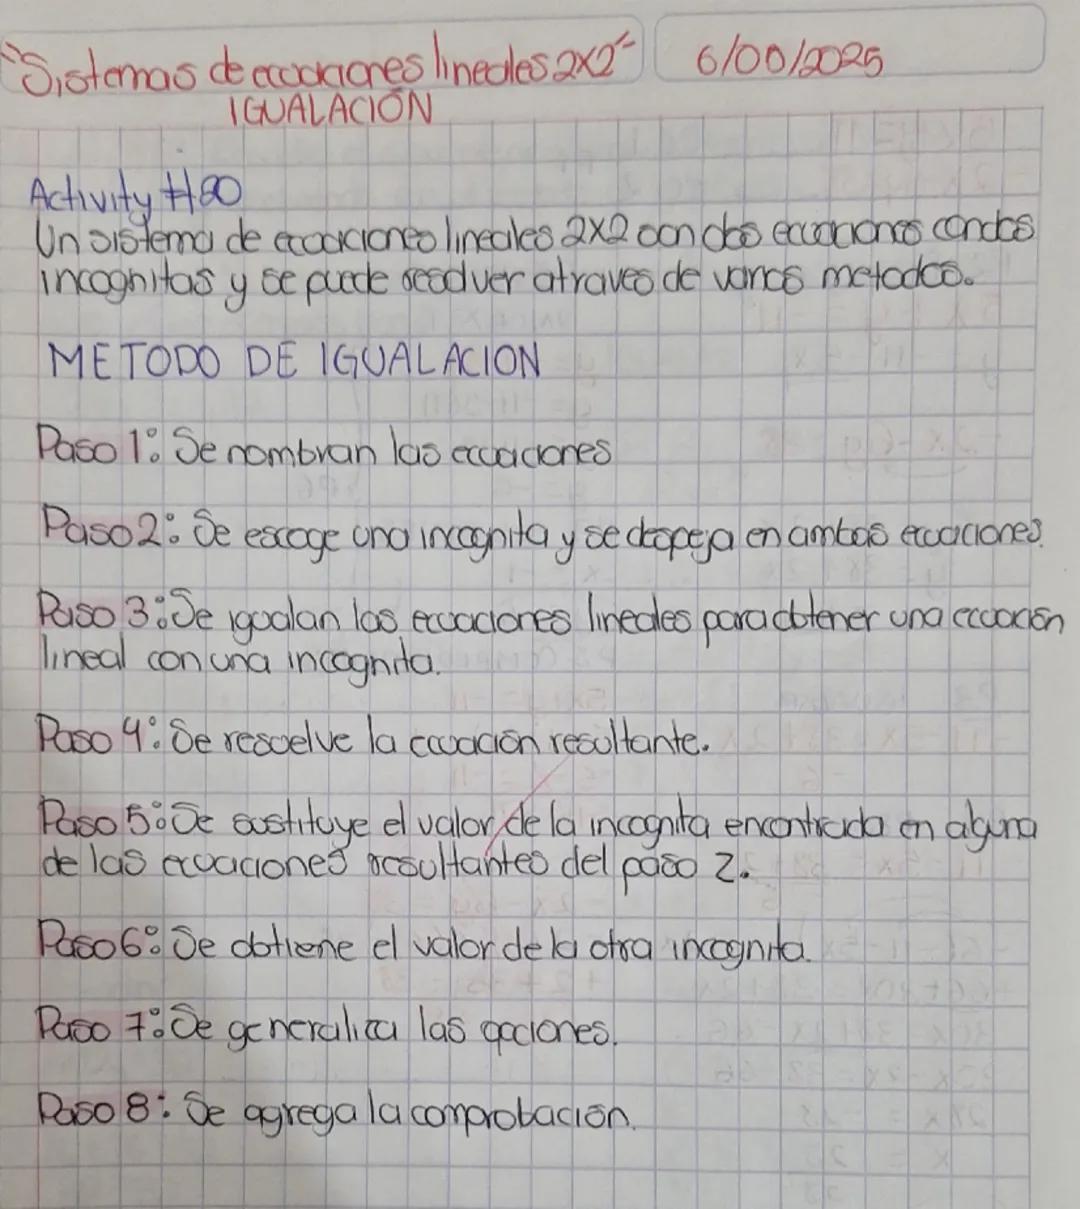 "Sistemas de ecuaciones lineales 2x2" 6/00/2025
IGUALACIÓN
Activity #20
Un sistema de ecuaciones lineales 2x2 son dos ecuaciones con dos
incognitas y se puede resolver atraves de varios metodos.
METODO DE IGUALACION
Paso 1: Se nombran las ecuaciones
Paso 2: Se escoge una incognita y se despeja en ambas ecuaciones.
Paso 3: Se igualan las ecuaciones lineales para obtener una ecuación
lineal con una incognita.
Paso 4: Se resuelve la ecuación resultante.
Paso 5: Se sustituye el valor de la incognita encontrada en alguna
de las ecuaciones resultantes del paso 2.
Paso 6: Se obtiene el valor de la otra incognita.
Paso 7: Se generaliza las
Paso 8: Se agrega la comprobación.